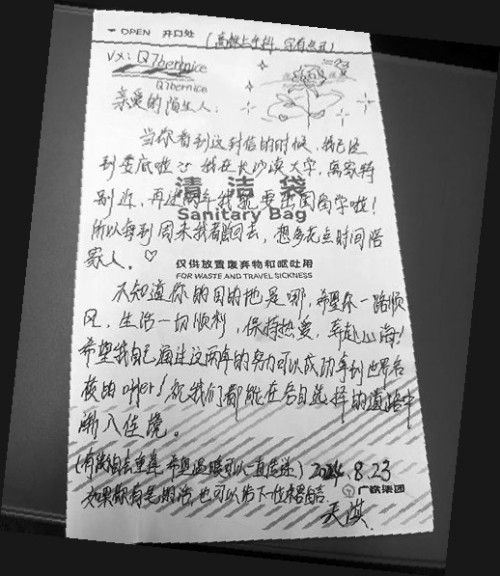 OPEN 开口处
vx: Q7bernice
Q7bernice
亲爱的陌生人:
当你看到这封信的时候,我已经
到娄底啦 我在长沙读大学,离家特
别近,再过两年我就要出国留学啦!
清洁袋
Sanitary Bag
所以每到周末我都回去,想多花点时间陪
家人。♡
仅供放置废弃物和呕吐用
FOR WASTE AND TRAVEL SICKNESS
不知道你的目的地是哪,希望你一路顺
风,生活一切顺利,保持热爱,奔赴山海!
希望我自己通过这两年的努力可以成功拿到世界名
校的offer!祝我们都能在各自选择的道路中
渐入佳境。
希望温暖可以一直传递) 2024 8.23
如果你有笔的话,也可以给下一位留言
广铁集团
天淇